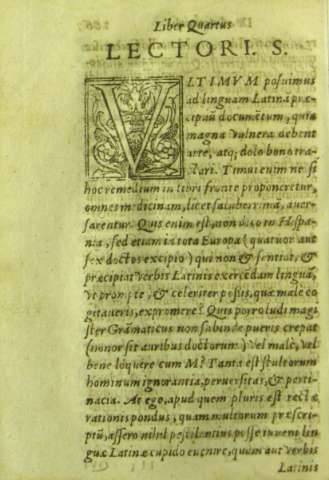 Liber Quartus
LECTORI. S.
VLTIMVM posuimus
ad linguam Latinã præ
cipuũ documẽtum, quia
magna vulnera debent
arte, atq; dolo bono tra-
ctari. Timui enim ne si
hoc remedium in libri fronte proponeretur,
omnes medicinam, licet saluberrimã, auer-
sarentur. Quis enim est, non dico in Hispa-
nia, sed etiam in tota Europa (quatuor aut
sex doctos excipio) qui non & sentiat, &
præcipiat verbis Latinis exercẽdam linguã,
vt promptè, & celeriter possis, quæ malè co
gitaueris, expromere? Quis porro ludi magi
ster Grãmaticus non subinde pueris crepat
(honor sit auribus doctorum) Vel malè, vel
bene loquere cum M? Tanta est stultorum
hominum ignorantia, peruersitas, & perti-
nacia. At ego, apud quem pluris est rectæ
rationis pondus, quam multorum præscri-
ptũ, assero nihil pestilentius posse iuueni lin
guæ Latinæ cupido euenire, quam aut verbis
Latinis